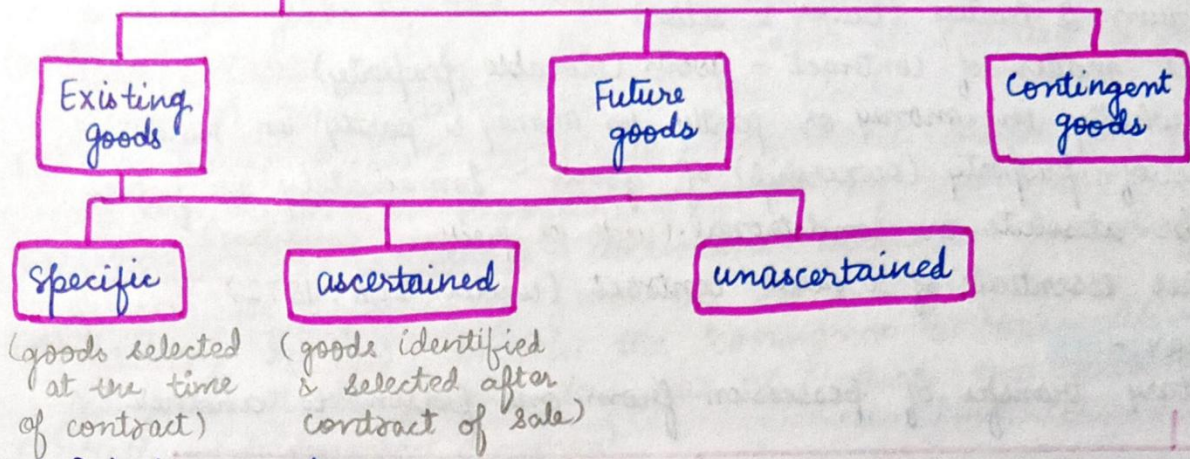 Existing
goods
Future
goods
Contingent
goods
Specific
ascertained
unascertained
(goods selected
at the time
of contract)
(goods identified
& selected after
contract of sale)